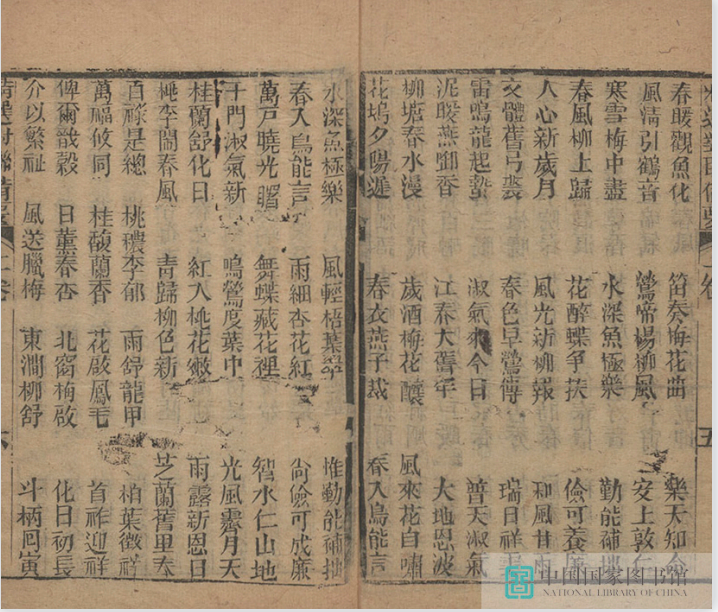 春暖觀魚化 笛奏梅花曲 樂天知命
風清引鶴音 鶯啼楊柳風 安上敦仁
寒雪梅中盡 水深魚極樂 勤能補拙
春風柳上歸 花醉蝶爭扶 儉可養廉
人心新歲月 風光新柳報 和風甘雨
文體舊弓裘 春色早鶯傳 瑞日祥
雷鳴龍起蟄 淑氣來今日 普天淑氣
泥暖燕啣香 江春大舊年 大地恩波
柳塘春水漫 歲酒梅花釀 風來花自嘯
花塢夕陽遲 春衣燕子裁 春入鳥能言
五
水深魚極樂 風輕梧葉 惟勤能補拙
春入鳥能言 雨細杏花紅 尚儉可成廉
萬戶曉光曙 舞蝶藏花裡 智水仁山地
千門淑氣新 鳴鶯度葉中 光風霽月天
桂蘭舒化日 紅入桃花嫩 雨露新恩日
桃李鬧春風 青歸柳色新 芝蘭舊里春
百祿是總 桃穠李郁 雨舒龍甲 柏葉徵祥
萬福攸同 桂馥蘭香 花啟鳳毛 首祚迎祥
俾爾戩穀 日董春杏 北窗梅啟 化日初長
介以繁祉 風送臘梅 東澗柳舒 斗柄回寅
二卷
中国国家图书馆
NATIONAL LIBRARY OF CHINA